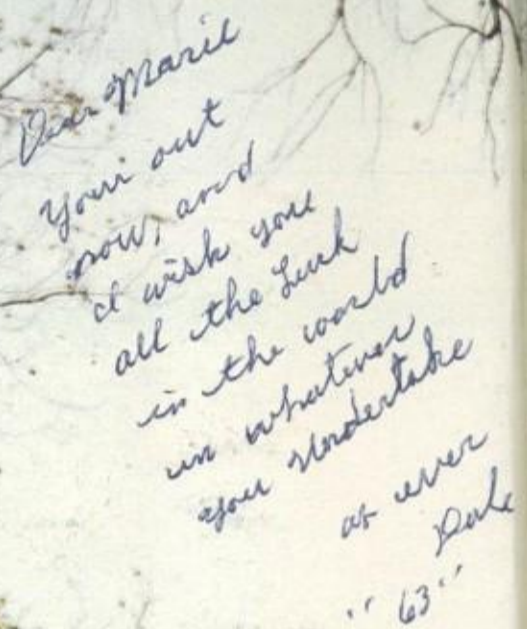 Dear Marie
Your out
now, and
I wish you
all the Luck
in the world
in whatever
you Undertake
as ever
Dale
"63"